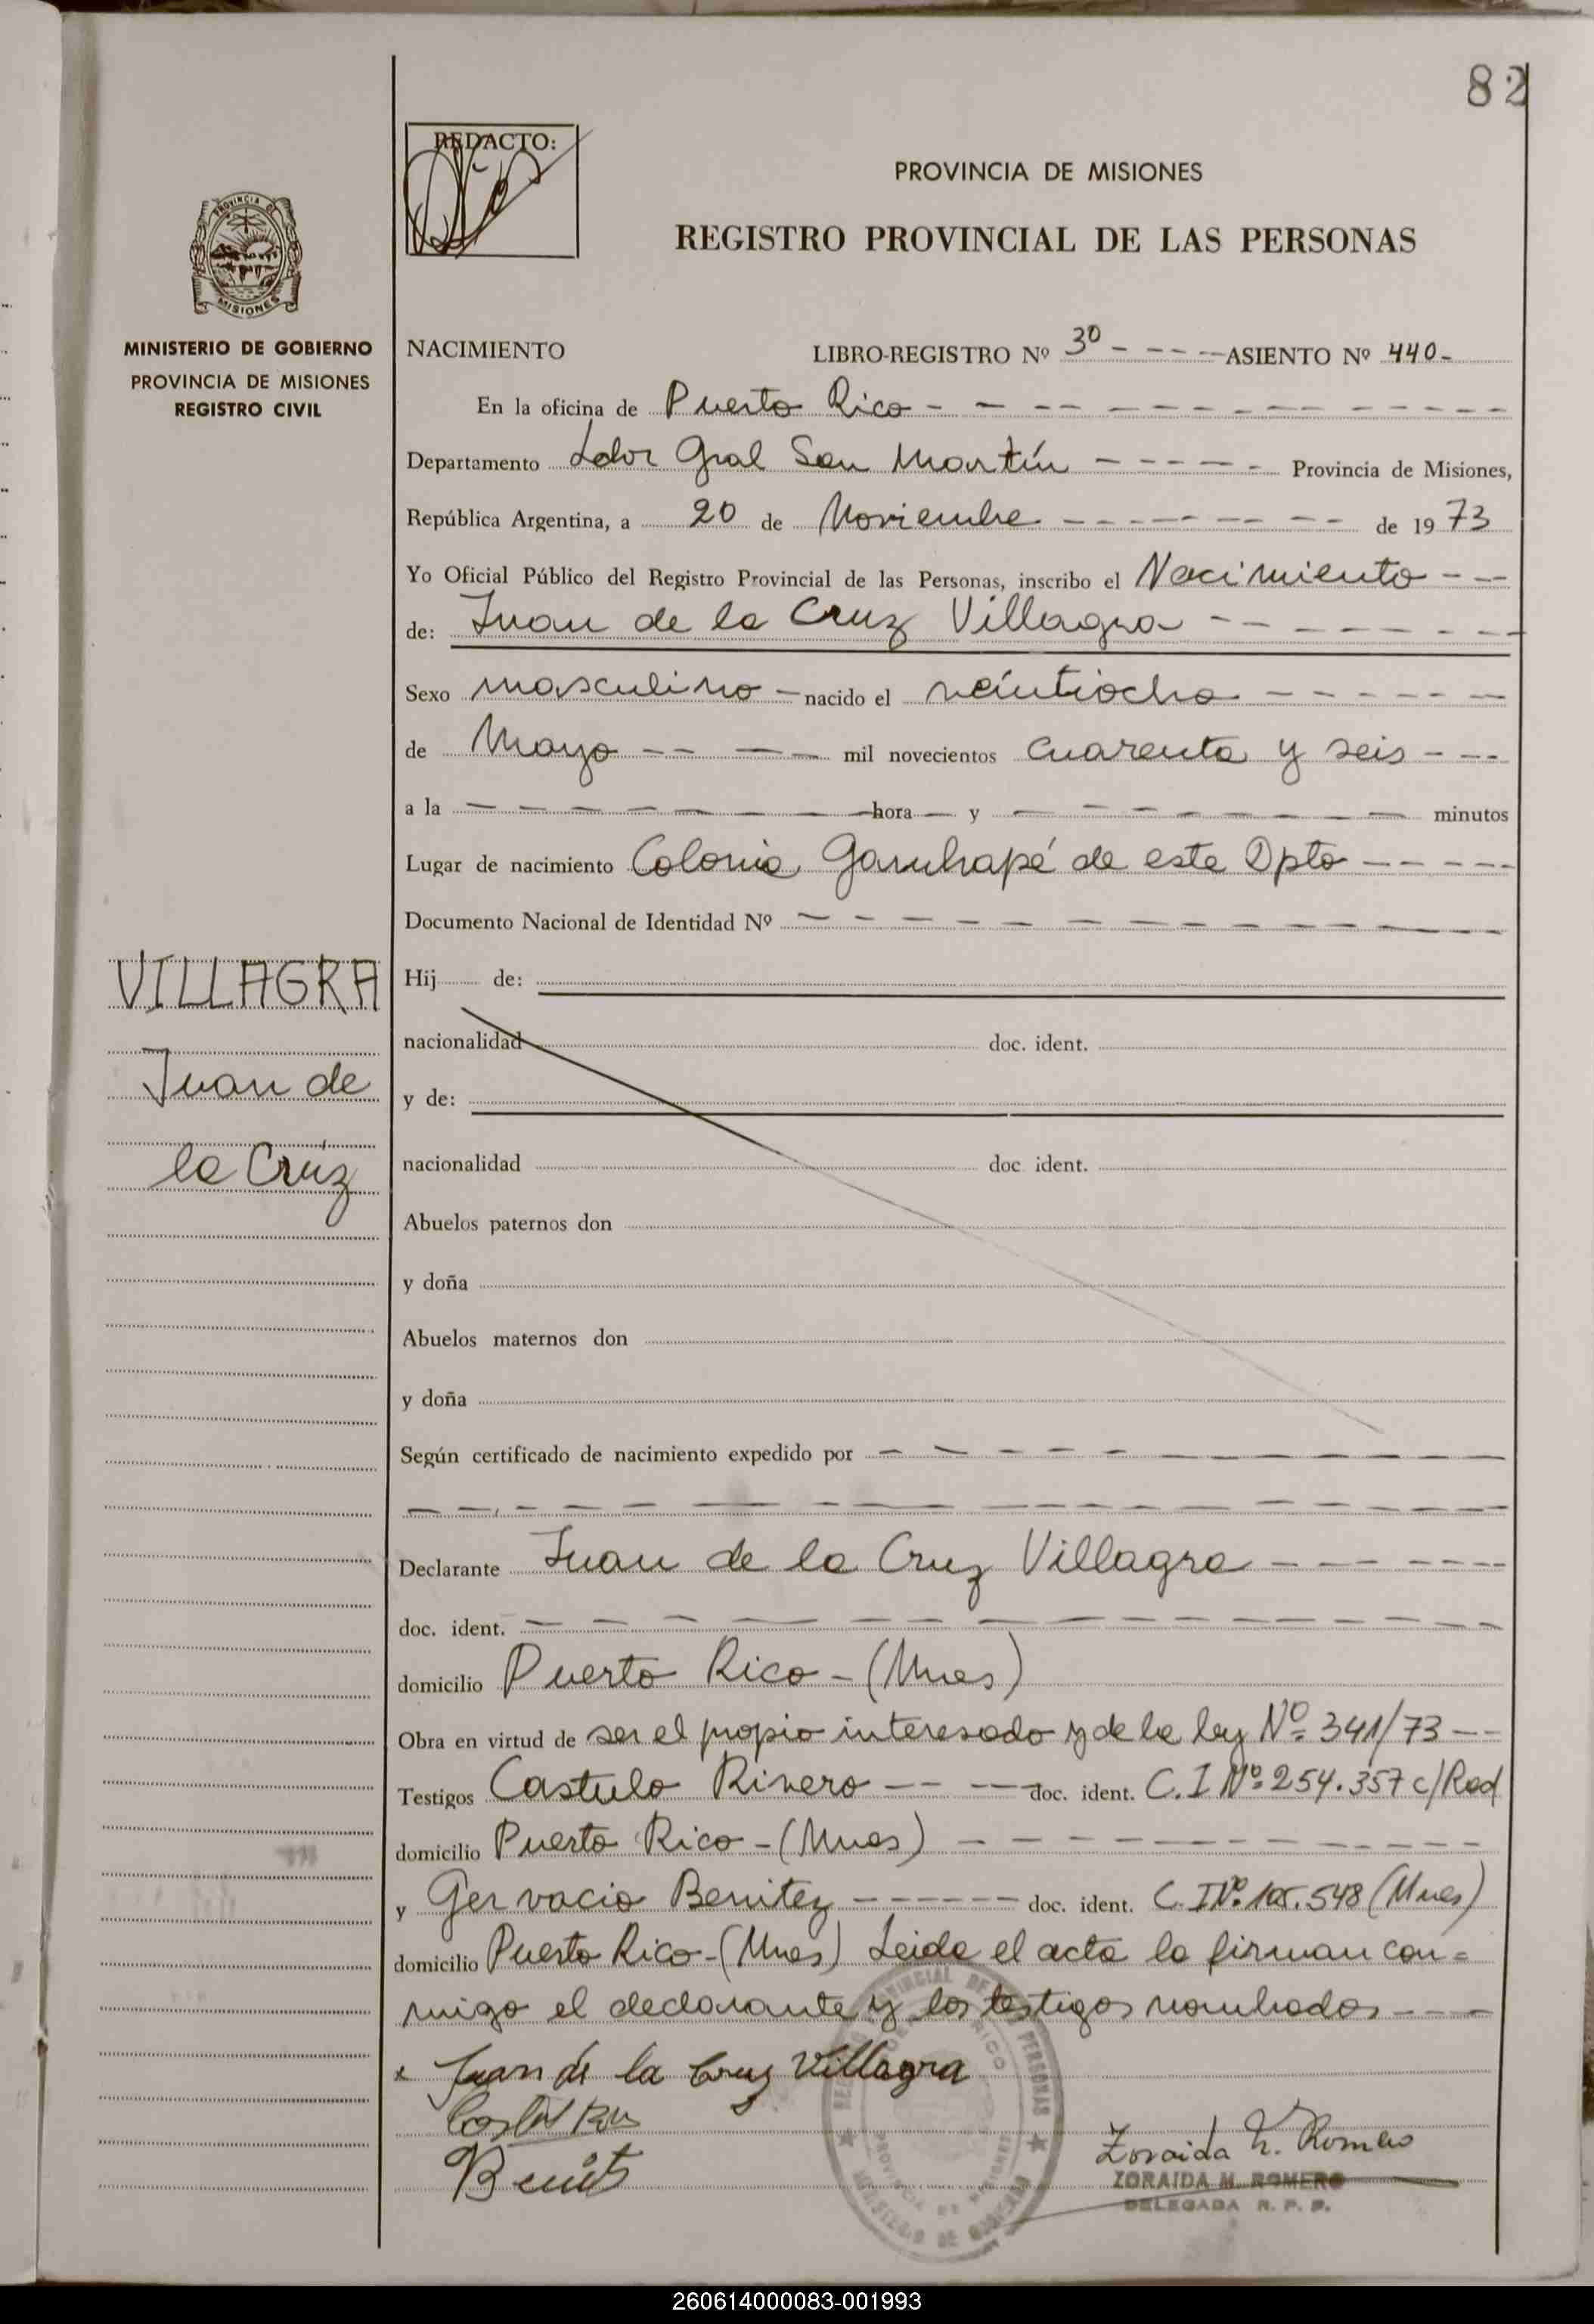 82
REDACTO:
PROVINCIA DE MISIONES
REGISTRO PROVINCIAL DE LAS PERSONAS
PROVINCIA DE
MISIONES
MINISTERIO DE GOBIERNO
PROVINCIA DE MISIONES
REGISTRO CIVIL
NACIMIENTO LIBRO-REGISTRO Nº 3º - - - - ASIENTO Nº 440-
En la oficina de Puerto Rico
Departamento Ldor Gral San Martín Provincia de Misiones,
República Argentina, a 20 de Noviembre de 1973
Yo Oficial Público del Registro Provincial de las Personas, inscribo el Nacimiento
de: Juan de la Cruz Villagra
Sexo masculino nacido el veintiocho
de Mayo mil novecientos cuarenta y seis
a la hora y minutos
Lugar de nacimiento Colonia Garuhapé de este Dpto
Documento Nacional de Identidad Nº
VILLAGRA
Juan de
la Cruz
Hij de:
nacionalidad doc. ident.
y de:
nacionalidad doc ident.
Abuelos paternos don
y doña
Abuelos maternos don
y doña
Según certificado de nacimiento expedido por
Declarante Juan de la Cruz Villagra
doc. ident.
domicilio Puerto Rico - (Mnes)
Obra en virtud de ser el propio interesado y de la ley Nº 341/73
Testigos Castulo Rivero doc. ident. C.I Nº 254.357 c/Rod
domicilio Puerto Rico - (Mnes)
y Gervacio Benitez doc. ident. C.I Nº .548 (Mnes)
domicilio Puerto Rico - (Mnes) Leida el acta la firman con=
migo el declarante y los testigos nombrados
x Juan de la Cruz Villagra
Benit
Zoraida M. Romero
ZORAIDA M. ROMERO
DELEGADA R. P. P.
260614000083-001993